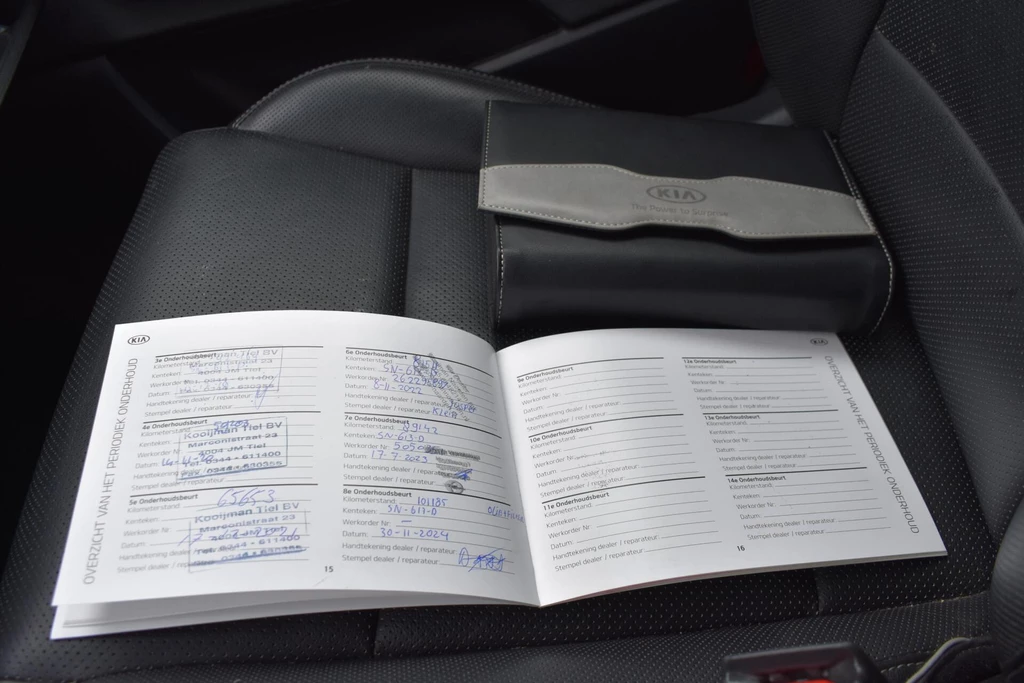 KIA
The Power to Surprise
KIA
OVERZICHT VAN HET PERIODIEK ONDERHOUD
3e Onderhoudsbeurt
Kilometerstand:
Kenteken:
Werkorder Nr:
Datum:
Handtekening dealer / reparateur:
Stempel dealer / reparateur:
Kooijman Tiel BV
Marconistraat 23
4004 JM Tiel
Tel. 0344 - 611400
4e Onderhoudsbeurt
Kilometerstand:
Kenteken:
Werkorder Nr:
Datum:
Handtekening
Stempel dealer / reparateur:
Kooijman Tiel BV
Marconistraat 23
4004 JM Tiel
Tel. 0344 - 611400
Fax. 0344 - 630355
5e Onderhoudsbeurt
Kilometerstand: 65653
Kenteken:
Werkorder Nr:
Datum:
Handtekening dealer / reparateur:
Stempel dealer / reparateur:
Kooijman Tiel BV
Marconistraat 23
Tel. 0344 - 611400
15
6e Onderhoudsbeurt
Kilometerstand:
Kenteken: SN-613-D
Werkorder Nr:
Datum: -11-2022
Handtekening dealer / reparateur:
Stempel dealer / reparateur:
7e Onderhoudsbeurt
Kilometerstand: 89142
Kenteken: SN-613-D
Werkorder Nr:
Datum: 17-7-2023
Handtekening dealer / reparateur:
Stempel dealer / reparateur:
8e Onderhoudsbeurt
Kilometerstand: 101185
Kenteken: SN-617-D
Werkorder Nr: —
Datum: 30-11-2024
Handtekening dealer / reparateur:
Stempel dealer / reparateur:
KIA
9e Onderhoudsbeurt
Kilometerstand:
Kenteken:
Werkorder Nr:
Datum:
Handtekening dealer / reparateur:
Stempel dealer / reparateur:
10e Onderhoudsbeurt
Kilometerstand:
Kenteken:
Werkorder Nr:
Datum:
Handtekening dealer / reparateur:
Stempel dealer / reparateur:
11e Onderhoudsbeurt
Kilometerstand:
Kenteken:
Werkorder Nr:
Datum:
Handtekening dealer / reparateur:
Stempel dealer / reparateur:
12e Onderhoudsbeurt
Kilometerstand:
Kenteken:
Werkorder Nr:
Datum:
Handtekening dealer / reparateur:
Stempel dealer / reparateur:
13e Onderhoudsbeurt
Kilometerstand:
Kenteken:
Werkorder Nr:
Datum:
Handtekening dealer / reparateur:
Stempel dealer / reparateur:
14e Onderhoudsbeurt
Kilometerstand:
Kenteken:
Werkorder Nr:
Datum:
Handtekening dealer / reparateur:
Stempel dealer / reparateur:
16
OVERZICHT VAN HET PERIODIEK ONDERHOUD